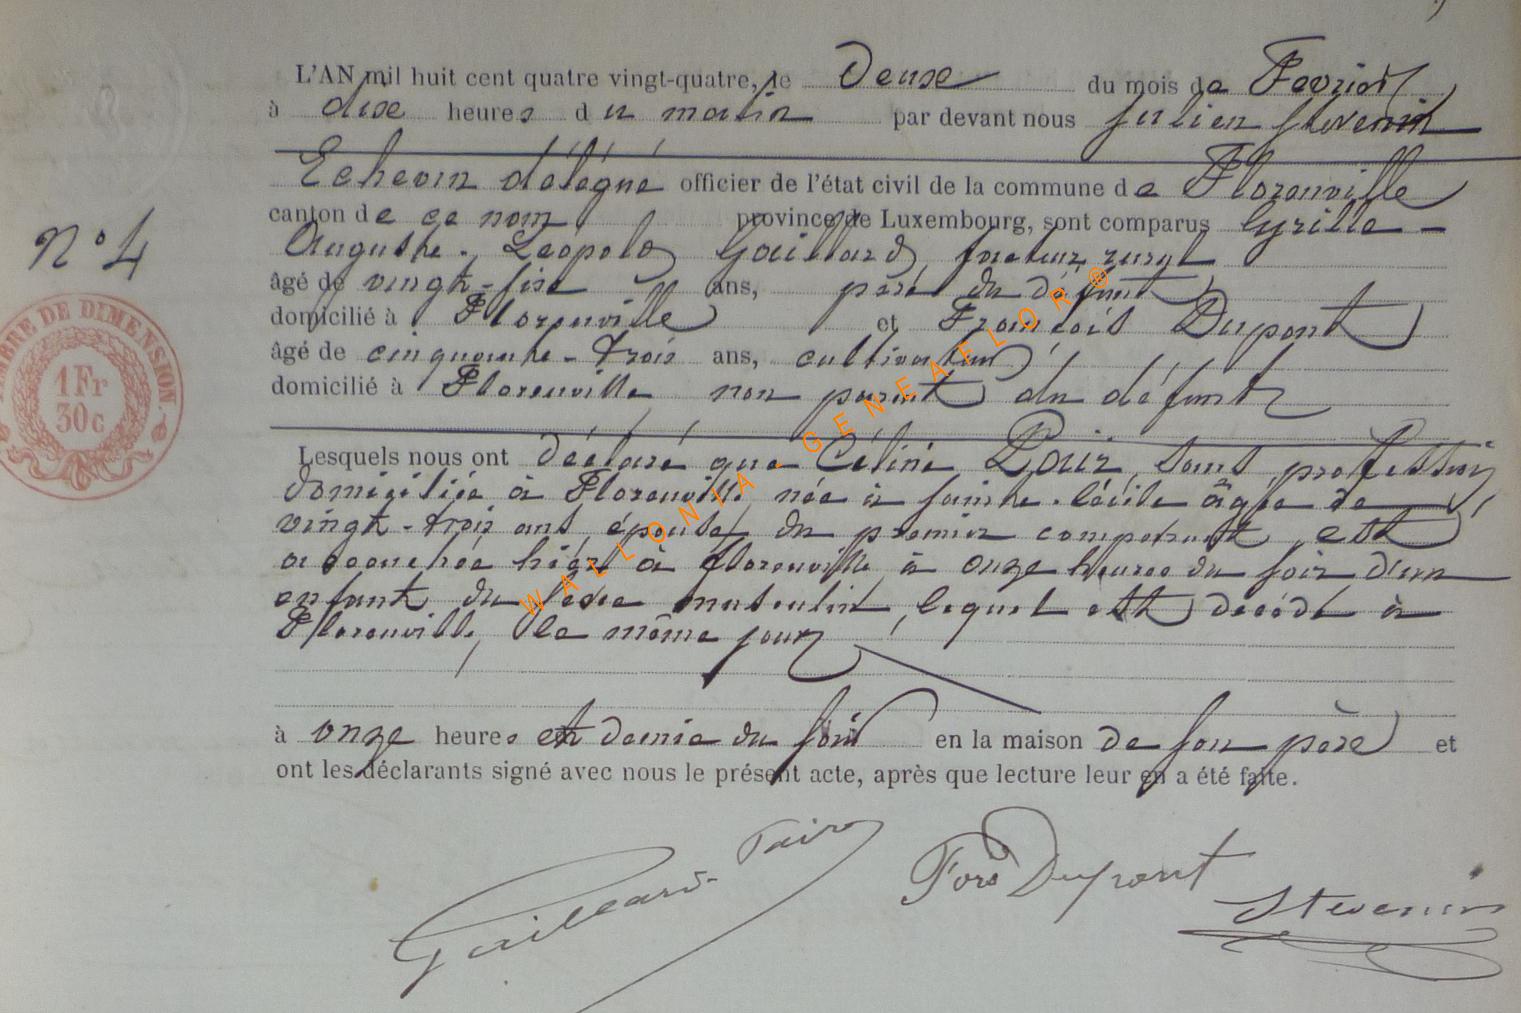 L'AN mil huit cent quatre vingt-quatre, le Deux du mois de Fevrier
à dix heures du matin par devant nous Julien Stevenin
Echevin délégué officier de l'état civil de la commune de Florenville
canton de ce nom province de Luxembourg, sont comparus Cyrille-
Auguste-Léopold Gaillard, facteur rural
N° 4
âgé de vingt-six ans, père du défunt
domicilié à Florenville et François Dupont
âgé de cinquante-trois ans, cultivateur
domicilié à Florenville, non parent du défunt
TIMBRE DE DIMENSION.
1 Fr
30c
Lesquels nous ont déclaré que Céline Poir, sans profession
domiciliée à Florenville née à Sainte-Cécile âgée de
vingt-trois ans, épouse du premier comparant, est
accouchée hier à Florenville à onze heures du soir d'un
enfant du sexe masculin, lequel est décédé à
Florenville, le même jour
à onze heures et demie du soir en la maison de son père et
ont les déclarants signé avec nous le présent acte, après que lecture leur en a été faite.
Gaillard-Poir
Fois Dupont
Stevenin
WALLONIA-GENEALOR®